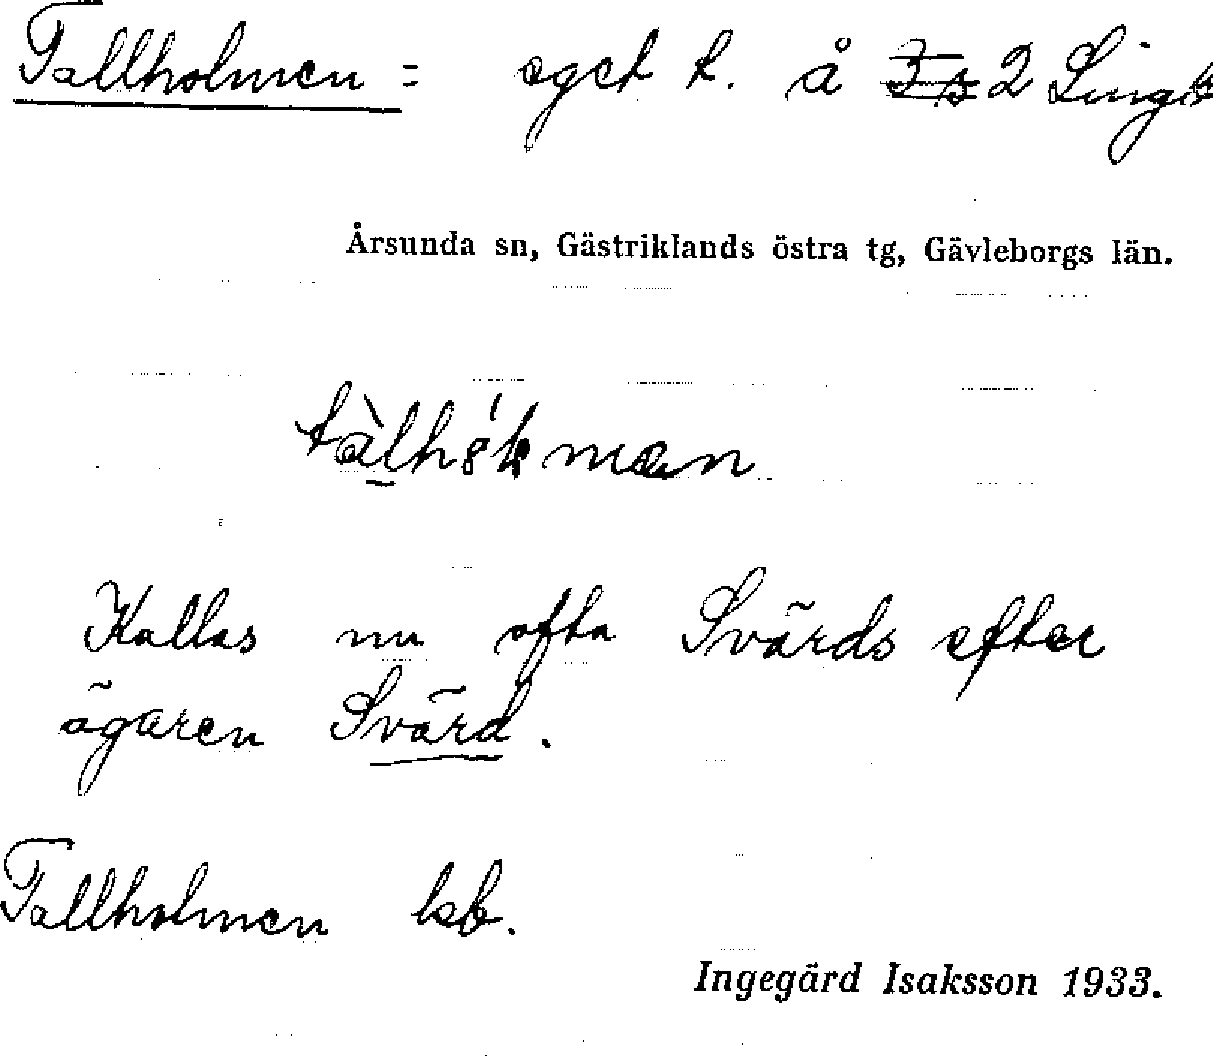 Tallholmen = eget t. å 2
Årsunda sn, Gästriklands östra tg, Gävleborgs län.
Kallas nu ofta Svärds efter
ägaren Svärd.
Tallholmen lsb.
Ingegärd Isaksson 1933.